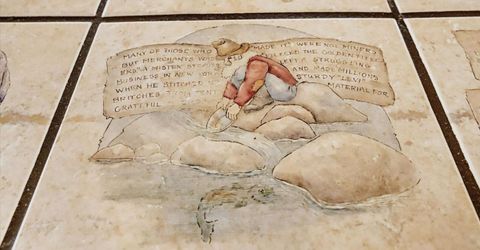 MANY OF THOSE WHO MADE IT WERE NOT MINERS
BUT MERCHANTS WHO COLLECTED THE GOLDEN FLEECE
LEFT A STRUGGLING
BUSINESS IN NEW YORK AND MADE MILLIONS
WHEN HE STITCHED STURDY "LEVI"
BRITCHES FROM TENT MATERIAL FOR
GRATEFUL